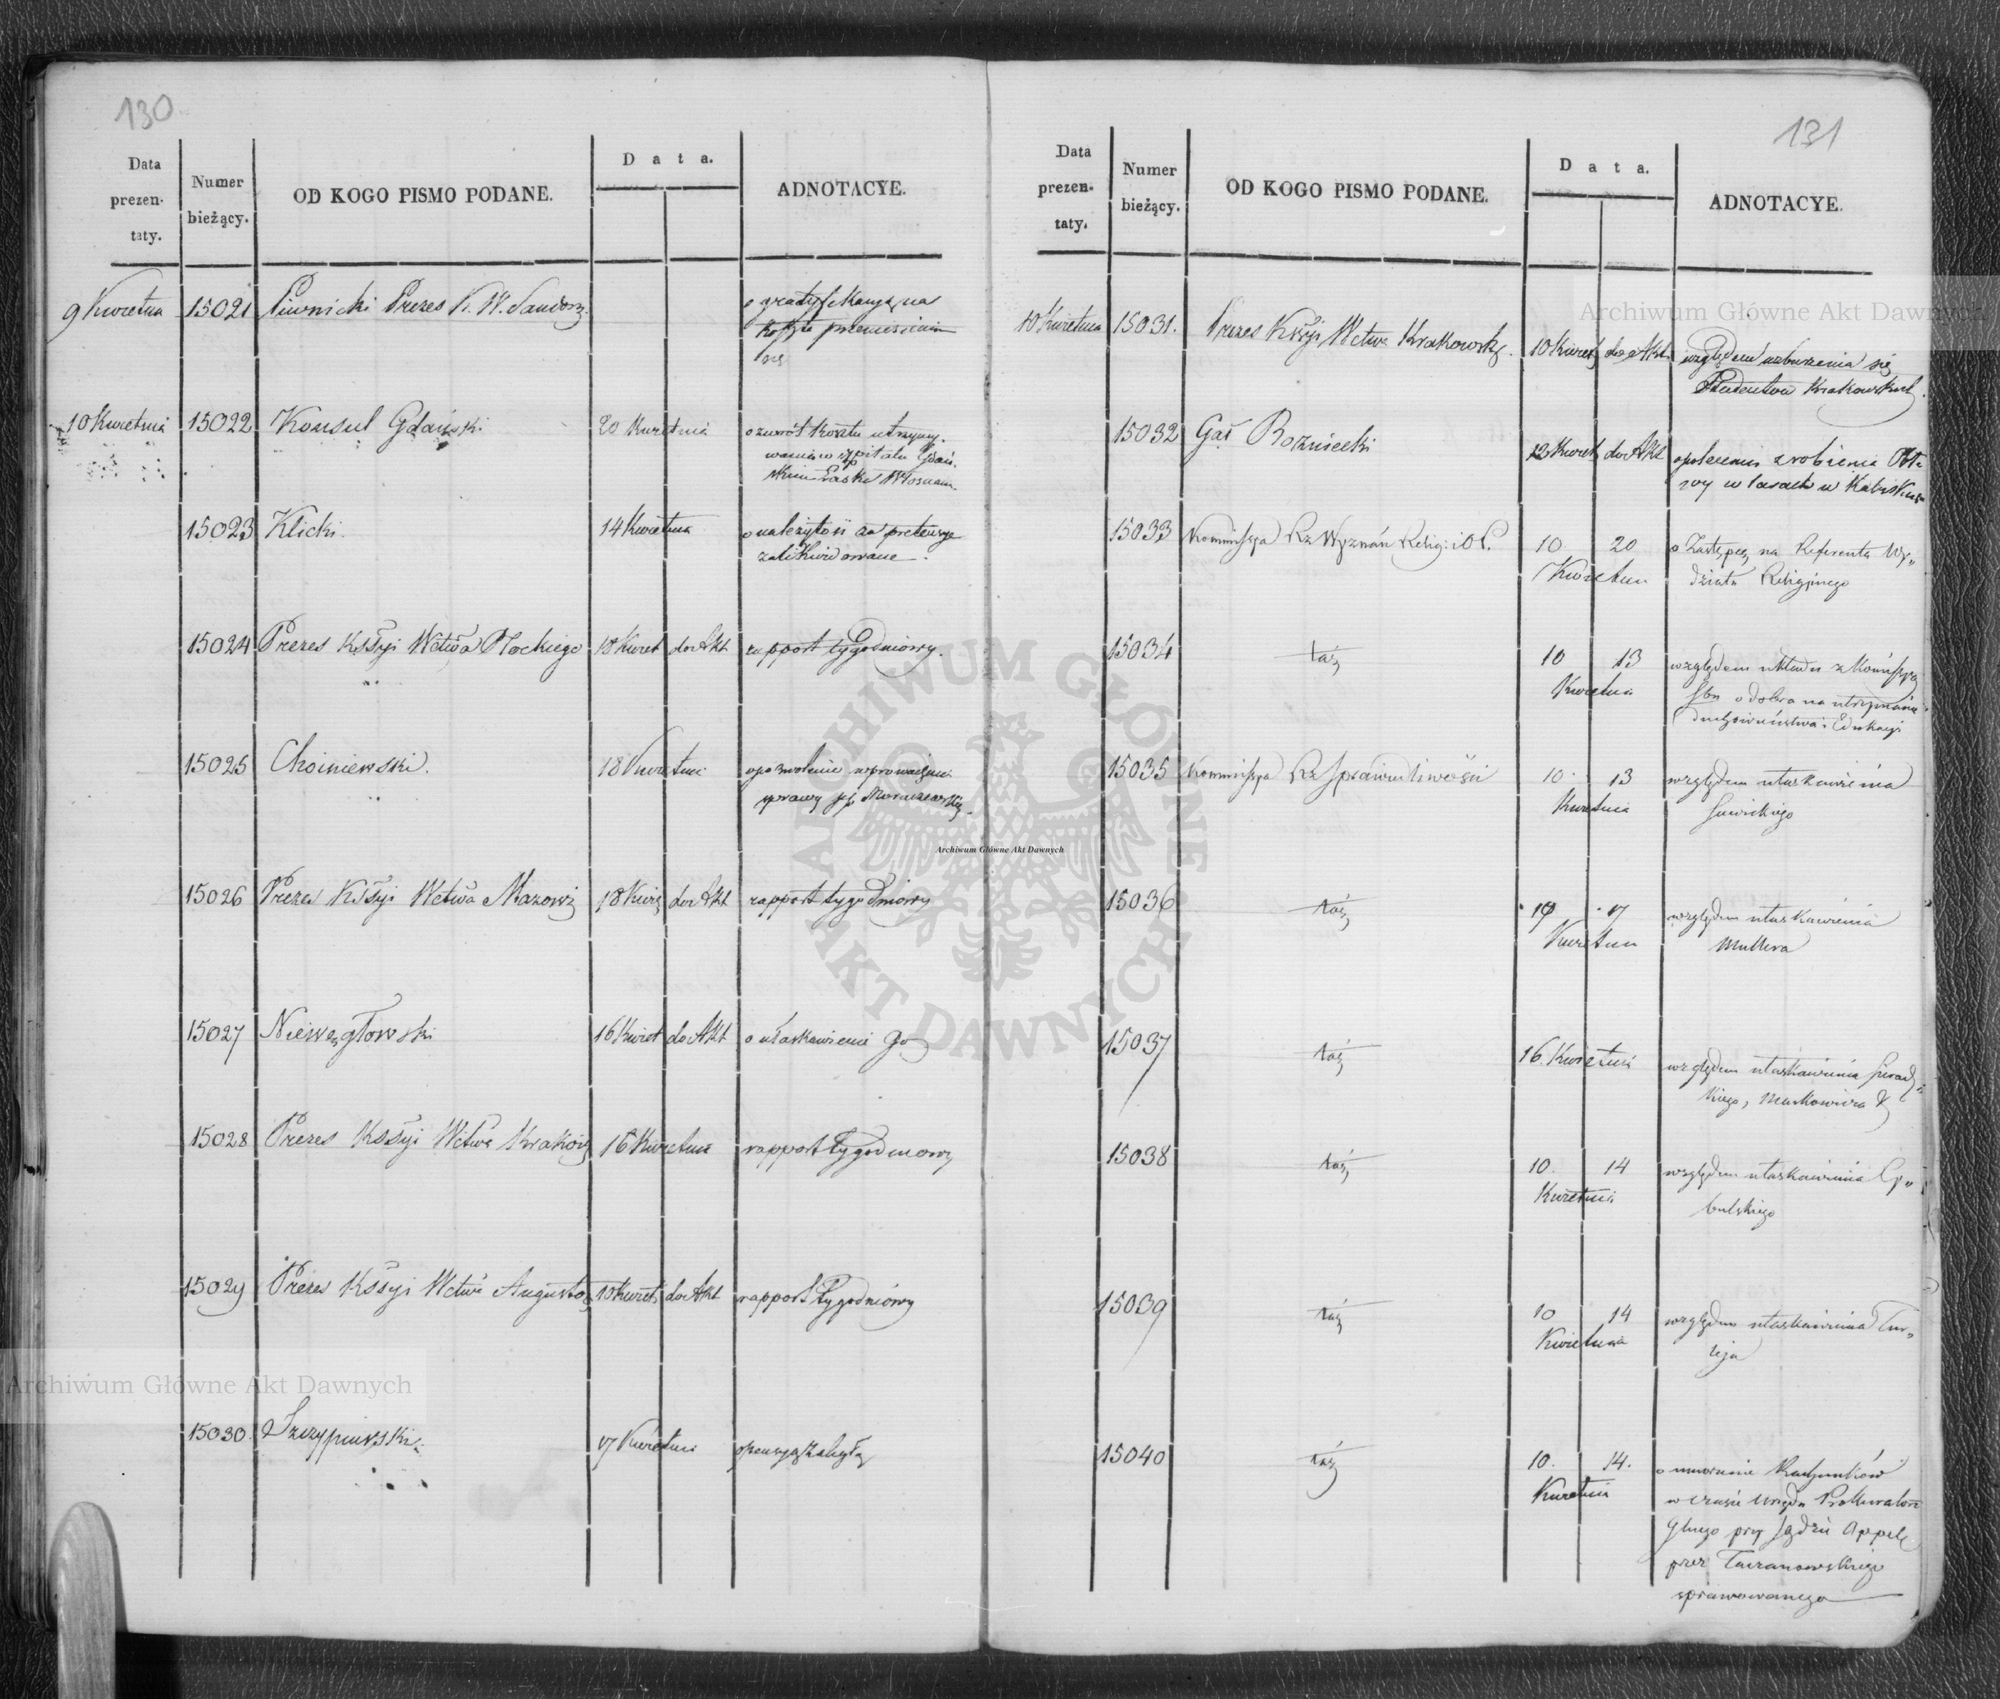 130
Data prezen- taty.
Numer bieżący.
OD KOGO PISMO PODANE.
Data.
ADNOTACYE.
9 Kwietnia 15021 Piwnicki Prezes K. W. Sandom. o gratyfikacyą na
koszta przeniesienia
się
10 Kwietnia 15022 Konsul Gdański. 20 Kwietnia o zwrót kosztu utrzymy-
wania w szpitalu Gdań-
skim
15023 Klicki. 14 Kwietnia o należytość za pretensye
zalikwidowane.
15024 Prezes Kssyi Wctwa Płockiego 18 Kwiet do Akt rapport tygodniowy.
15025 Choiniewski. 18 Kwietnia o pozwolenie wprowadzenia
sprawy
15026 Prezes Kssyi Wctwa Mazow 18 Kwie do Akt rapport tygodniowy
15027 Niewęgłowski 16 Kwiet do Akt o ułaskawienie go
15028 Prezes Kssyi Wctwa Krakow 16 Kwietnia rapport tygodniowy
15029 Prezes Kssyi Wctwa Augustow 10 Kwiet do Akt rapport tygodniowy
15030. Szczypiewski. 17 Kwietnia o pensyą zaległą
131
Data prezen- taty.
Numer bieżący.
OD KOGO PISMO PODANE.
Data.
ADNOTACYE.
10 Kwietnia 15031. Prezes Kssyi Wctwa Krakowskg. 10 Kwiet do Akt względem wzburzenia się
Studentów Krakowskich.
15032 Gał Rozniecki 12 Kwiet do Akt o polecenie zrobienia Obła-
wy w lasach w Kaliskiem
15033 Kommissya Rz Wyznań Relig: i O. P. 10 20 Kwietnia o Zastępcę na Referenta Wy-
działu Religijnego
15034 taż 10 13 Kwietnia względem układu z Kommissyą
Sbu o dobra na utrzymanie
duchowieństwa i Edukacyi
15035 Kommissya Rz Sprawiedliwości 10. 13 Kwietnia względem ułaskawienia
Sawickiego
15036 taż 10 17 Kwietnia względem ułaskawienia
Mullera
15037 taż 16. Kwietnia względem ułaskawienia Sieradz-
kiego, Markowicza
15038 taż 10. 14 Kwietnia względem ułaskawienia Cy-
bulskiego
15039 taż 10 14 Kwietnia względem ułaskawienia Tur-
leja
15040 taż 10. 14. Kwietnia o umorzenie Rachunków
w czasie urzędu Prokuratora
Głnego przy Sądzie Appel
przez Taczanowskiego
sprawowanego
Archiwum Główne Akt Dawnych
Archiwum Główne Akt Dawnych
Archiwum Główne Akt Dawnych
ARCHIWUM GŁÓWNE AKT DAWNYCH